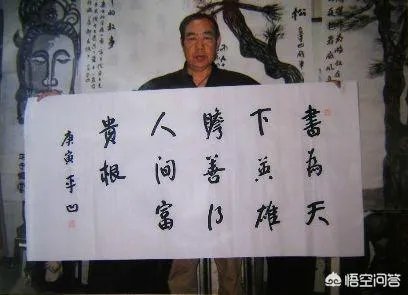 書為天
下英雄
膽善乃
人间富
貴根
庚寅 平凹
松
悟空问答